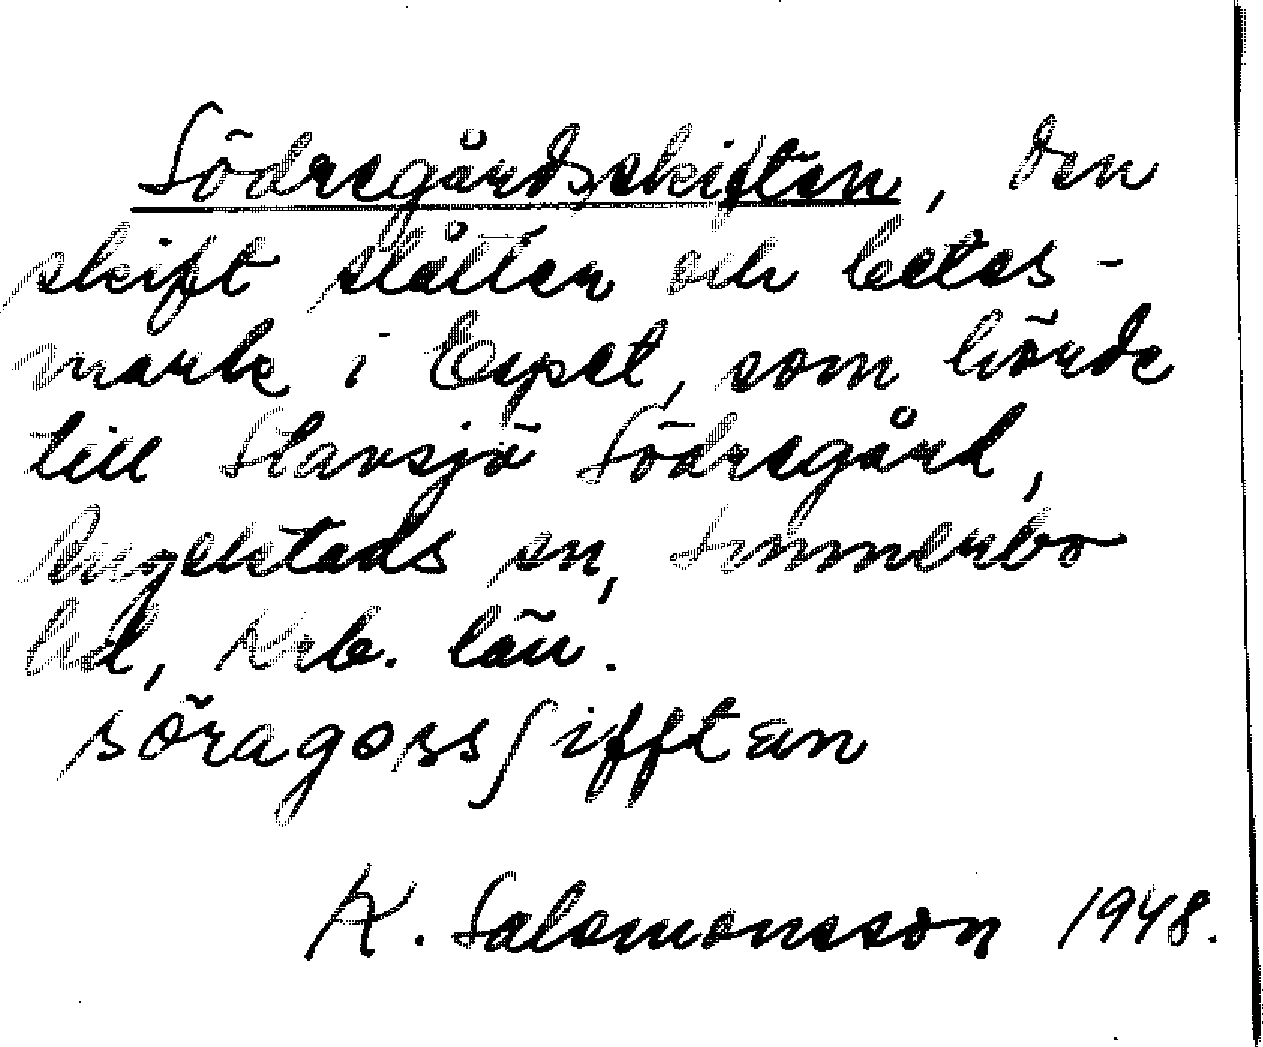 Södregårdsskiften, den
skift slåtter och betes-
mark i Espet, som hörde
till Stavsjö Södregård,
Ängelstads sn, Sunnerbo
hd, Krb. län.
söragossʃifftan
K. Salomonsson 1948.